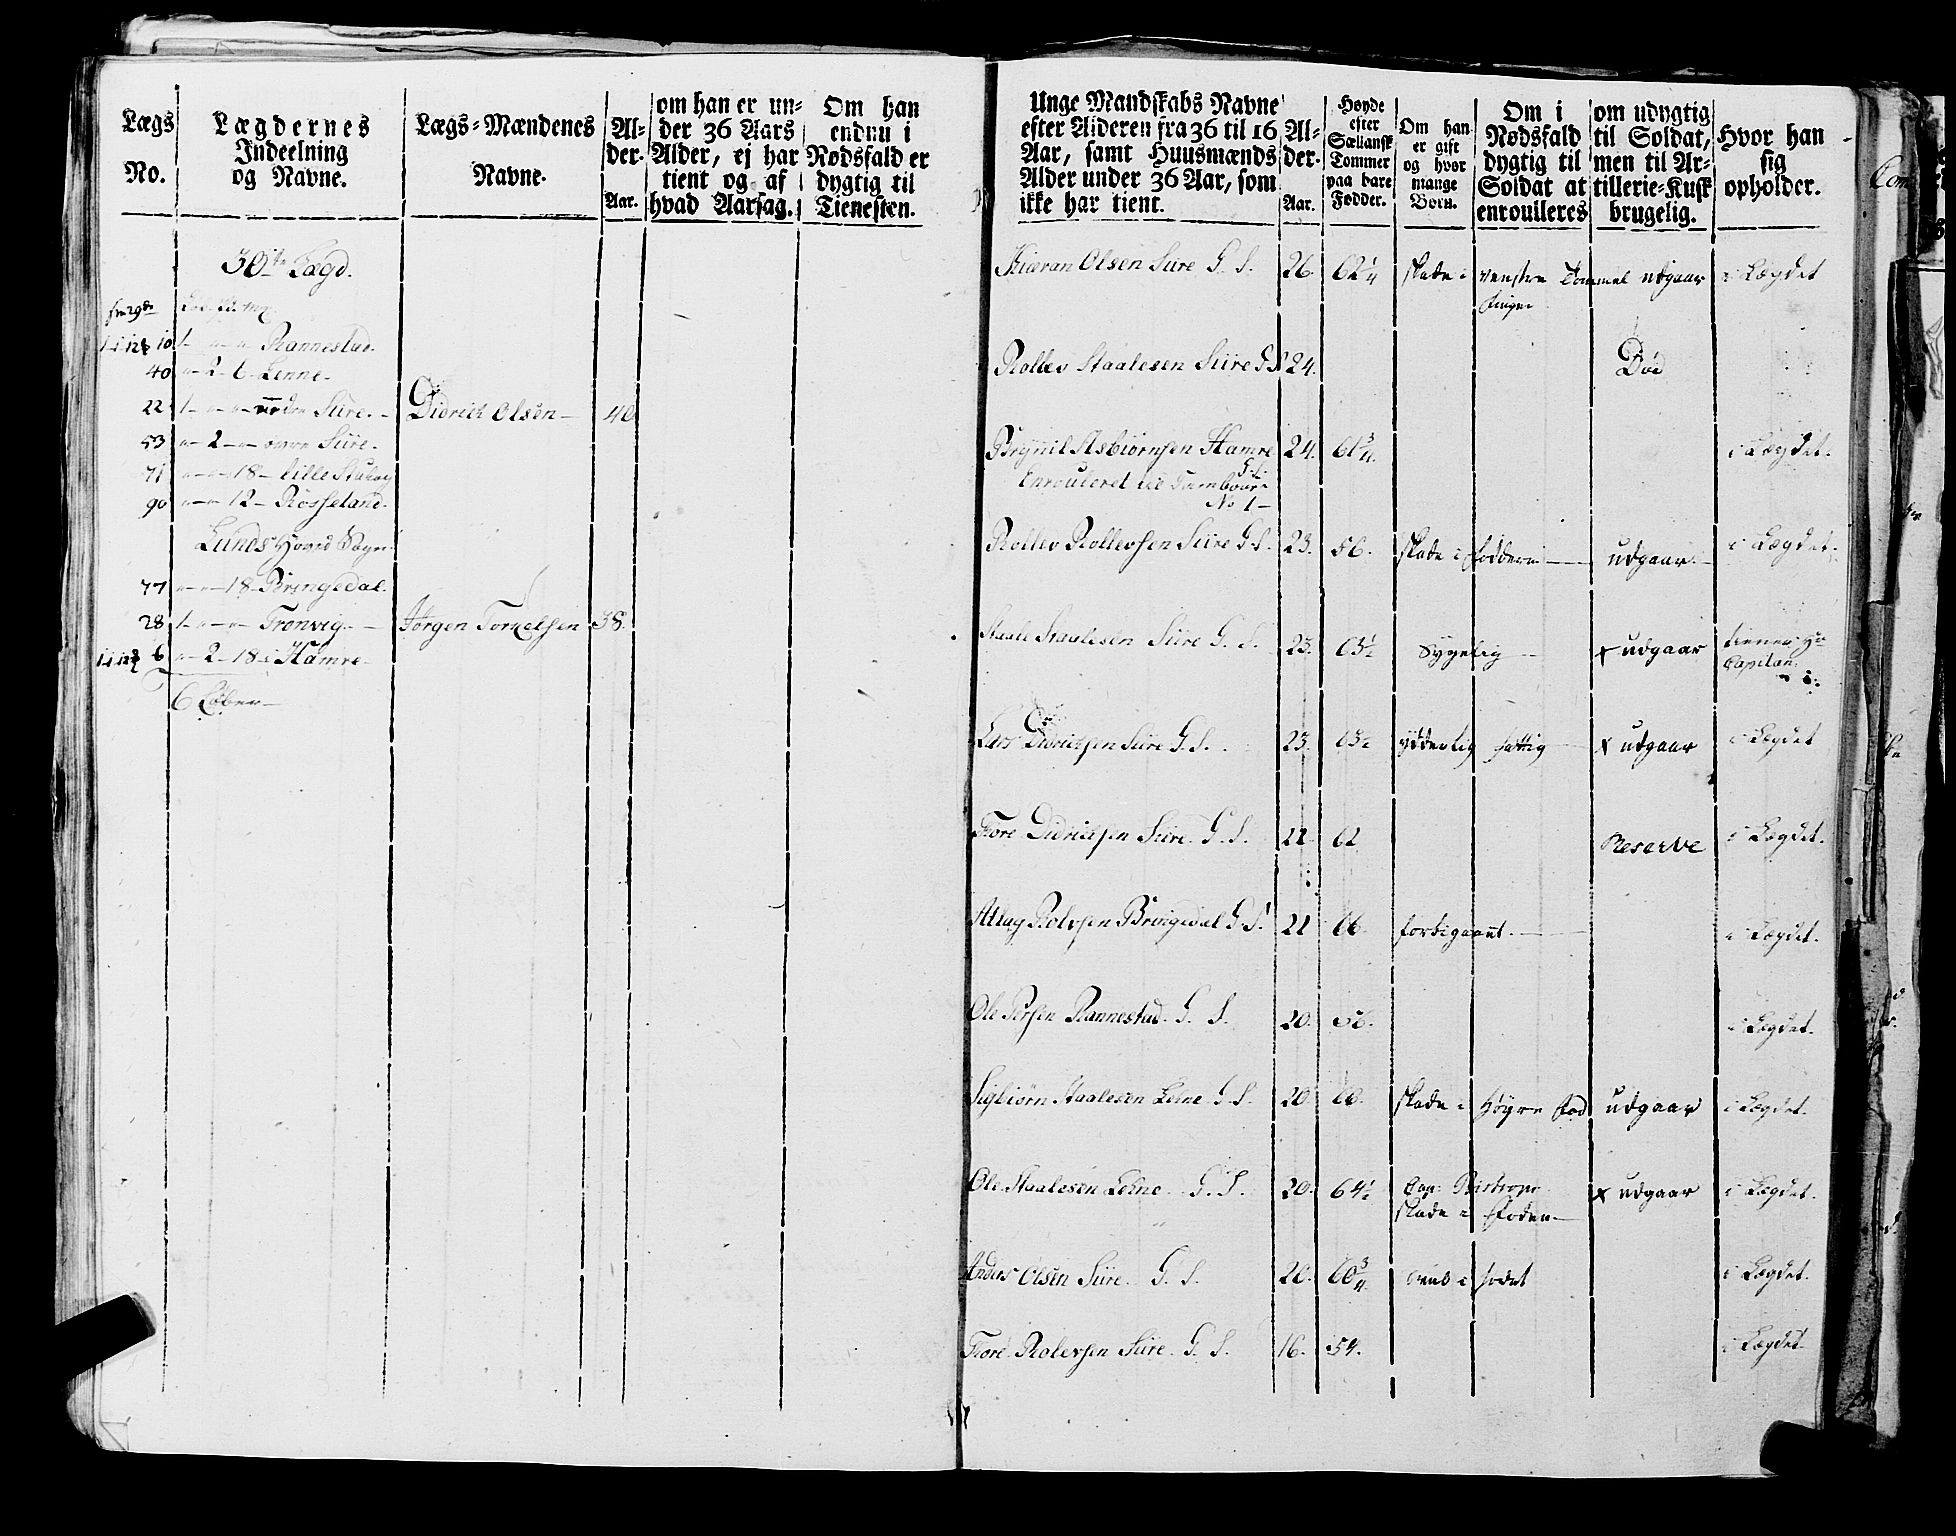 Lægs No.
Lægdernes Indeelning og Navne.
Lægs-Mændenes Navne.
Alder. Aar.
om han er under 36 Aars Alder, ej har tient og af hvad Aarsag.
Om han endnu i Nødsfald er dygtig til Tienesten.
30te Lægd.
10 1 - - Rannestad.
40 - 2 - 6 - Lenne.
22 1 - - - nedre Siire. Didrich Olsen 40
53 - 2 - - øvre Siire.
71 - - - 18 - lille
90 - - - 12 - Rosseland.
Lunds Hoved Sogn
77 - - - 18 - Bringedal.
28 1 - - - Tronvig. Jørgen Torkelsen 38.
6 - 2 - 18 - Hamre.
6 Løber
Unge Mandskabs Navne efter Alderen fra 36 til 16 Aar, samt Huusmænds Alder under 36 Aar, som ikke har tient.
Alder. Aar.
Høyde efter Sællansk Tommer paa bare Fødder.
Om han er gift og hvor mange Børn.
Om i Nødsfald dygtig til Soldat at enroulleres
om udygtig til Soldat, men til Artillerie-Kusk brugelig.
Hvor han sig opholder.
Olsen Siire G. S. 26. 62 1/4 skade i venstre Tommel udgaar i Lægdet
finger
Rollev Staalesen Siire G S 24. Død
Brynnil Asbiørnsen Hamre 24. 61 3/4 i Lægdet.
G. S.
Enrouleret til Tambour
No 1
Rollev Rollevsen Siire G S. 23. 56. skade i fodderne udgaar. i Lægdet.
Staale Staalesen Siire G. S. 23. 63 1/2 Sygelig x udgaar tiener
Capitain
Lars Didrichsen Siire G. S. 23. 63 1/2 ydderlig fattig x udgaar i Lægdet
Tore Didrichsen Siire. G. S. 22. 62 Reserve i Lægdet.
Atlag Rolvsen Bringedal G S. 21 66. forbigaaet. i Lægdet.
Ole Persen Rannestad. G. S. 20. 56. i Lægdet.
Sigbiørn Staalesen Lene G S. 20. 60. skade i høyre fod udgaar i Lægdet.
Ole Staalesen Lene. G. S. 20. 64 1/2 Cap: x udgaar i Lægdet.
skade i foden
Anders Olsen Siire. G. S. 20. 60 3/4 i fodet i Lægdet.
Tore Rolevsen Siire. G. S. 16. 54. i Lægdet